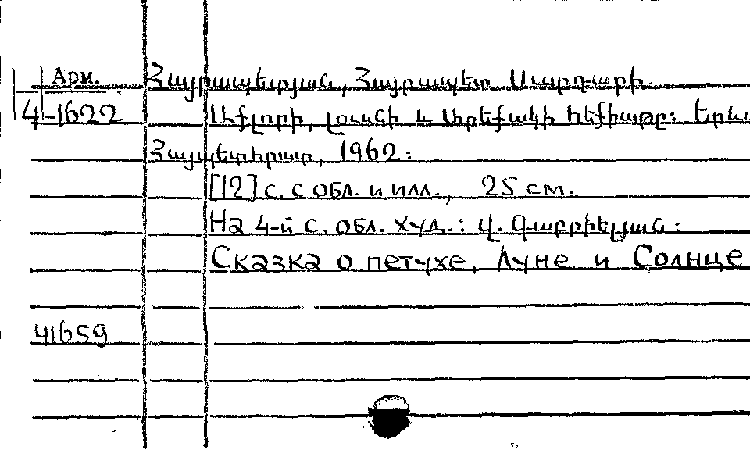 Арм.
4-1622
Հայրապետյան, Հայրապետ Մարգարի.
Աքլորի, լուսնի և Արեգակի հեքիաթը: Երև
Հայպետհրատ, 1962.
[12] с. с обл. и илл., 25 см.
На 4-й с. обл. худ.: Վ. Գաբրիելյան.
Сказка о петухе, Луне и Солнце
41659